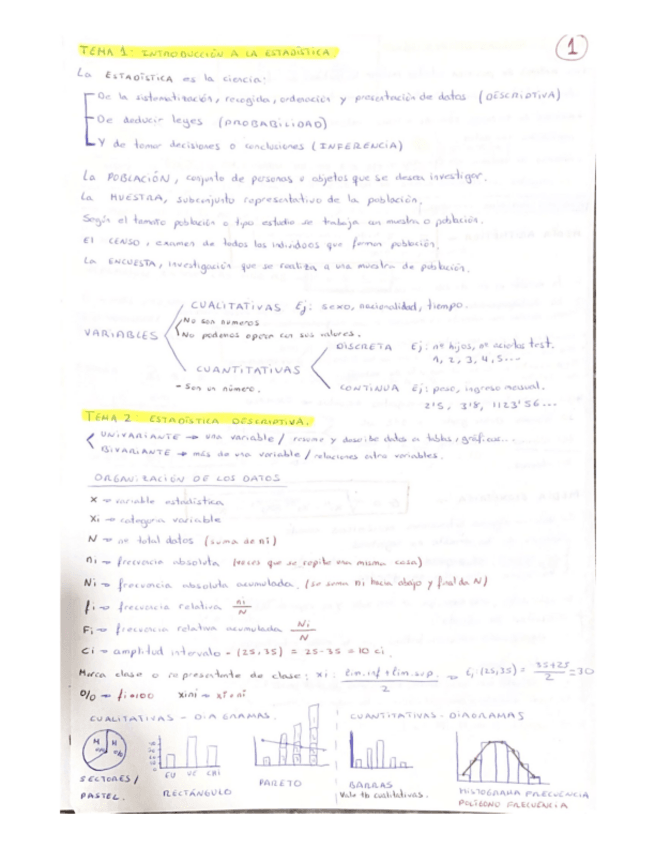 TEMA 1: INTRODUCCIÓN A LA ESTADÍSTICA.
1
La ESTADÍSTICA es la ciencia:
De la sistematización, recogida, ordenación y presentación de datos (DESCRIPTIVA)
De deducir leyes (PROBABILIDAD)
Y de tomar decisiones o conclusiones (INFERENCIA)
La POBLACIÓN, conjunto de personas u objetos que se desea investigar.
La MUESTRA, subconjunto representativo de la población.
Según el tamaño población o tipo estudio se trabaja con muestra o población.
El CENSO, examen de todos los individuos que forman población.
La ENCUESTA, investigación que se realiza a una muestra de población.
VARIABLES
CUALITATIVAS Ej: sexo, nacionalidad, tiempo.
No son números
No podemos operar con sus valores.
CUANTITATIVAS
- Son un número.
DISCRETA Ej: nº hijos, nº aciertos test.
1, 2, 3, 4, 5...
CONTINUA Ej: peso, ingreso mensual.
2'5, 3'8, 1123'56...
TEMA 2: ESTADÍSTICA DESCRIPTIVA.
UNIVARIANTE → una variable / resume y describe datos en tablas, gráficas...
BIVARIANTE → más de una variable / relaciones entre variables.
ORGANIZACIÓN DE LOS DATOS
X → variable estadística
Xi → categoría variable
N → nº total datos (suma de ni)
ni → frecuencia absoluta (veces que se repite una misma cosa)
Ni → frecuencia absoluta acumulada. (se suma ni hacia abajo y final da N)
fi → frecuencia relativa ni/N
Fi → frecuencia relativa acumulada Ni/N
Ci → amplitud intervalo - (25,35) = 25-35 = 10 ci.
Marca clase o representante de clase: xi: lim.inf + lim.sup. / 2 → Ej: (25,35) = 35+25 / 2 = 30
% → fi·100 xini → xi·ni
CUALITATIVAS - DIAGRAMAS.
CUANTITATIVAS - DIAGRAMAS
H
EU
SECTORES / PASTEL.
RECTÁNGULO
PARETO
BARRAS
Vale tb cualitativas.
HISTOGRAMA FRECUENCIA
POLÍGONO FRECUENCIA